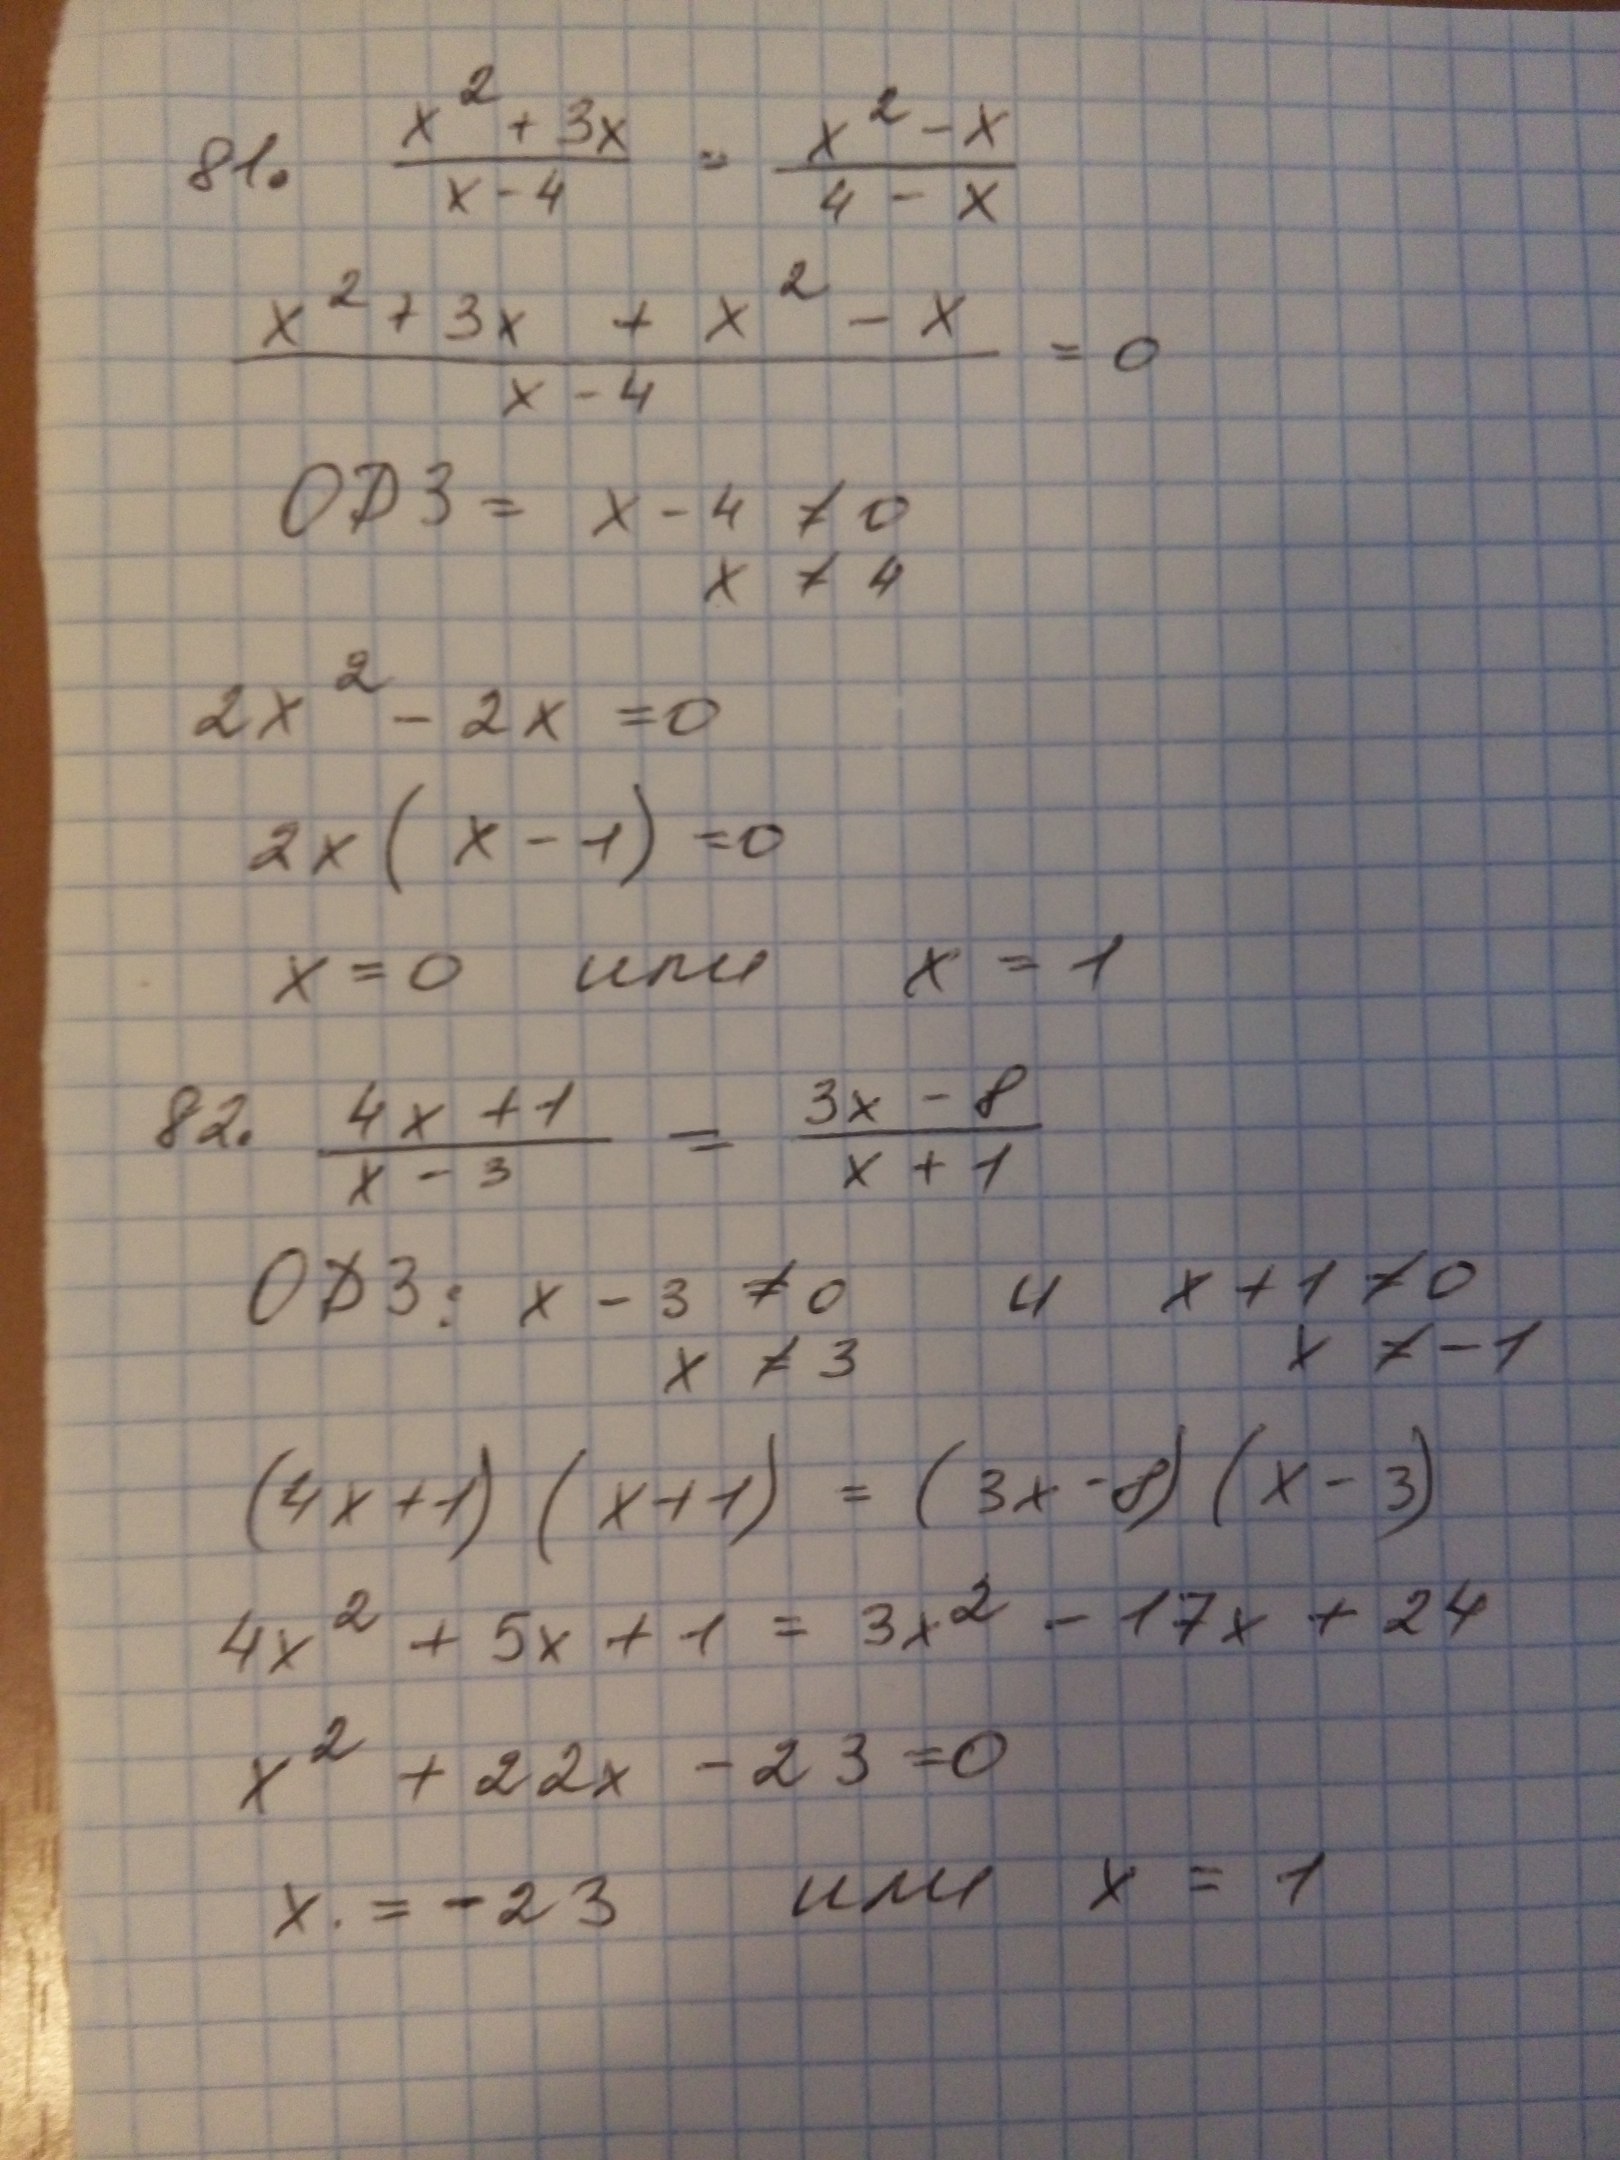 81. (x² + 3x)/(x - 4) = (x² - x)/(4 - x)
(x² + 3x + x² - x)/(x - 4) = 0
ОДЗ = x - 4 ≠ 0
x ≠ 4
2x² - 2x = 0
2x(x - 1) = 0
x = 0 или x = 1
82. (4x + 1)/(x - 3) = (3x - 8)/(x + 1)
ОДЗ: x - 3 ≠ 0 и x + 1 ≠ 0
x ≠ 3 x ≠ -1
(4x+1)(x+1) = (3x-8)(x-3)
4x² + 5x + 1 = 3x² - 17x + 24
x² + 22x - 23 = 0
x = -23 или x = 1